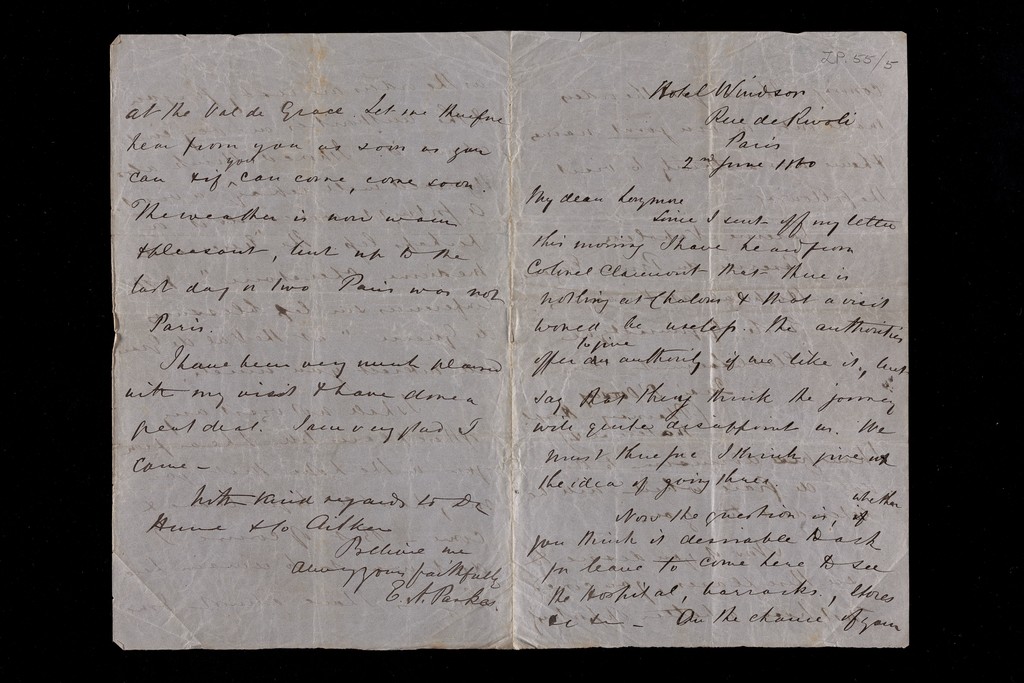 LP. 55/5
Hotel Windsor
Rue de Rivoli
Paris
2nd June 1860
My dear Longmore
Since I sent off my letter
this morning I have heard from
Colonel Claremont that there is
nothing at Chalons & that a visit
would be useless. The authorities
offer to give an authority if we like it, but
say that they think the journey
will quite disappoint us. We
must therefore I think give up
the idea of going there.
Now the question is, if whether
you think it desirable to ask
for leave to come here to see
the Hospital, barracks, stores
&c &c – On the chance of your
at the Val de Grace Let me therefore
hear from you as soon as you
can & if you can come, come soon.
The weather is now warm
& pleasant, but up to the
last day or two Paris was not
Paris.
I have been very much pleased
with my visit & have done a
great deal. I am very glad I
came –
With kind regards to Dr
& to Aitken
Believe me
always yours faithfully
E. A. Parkes.